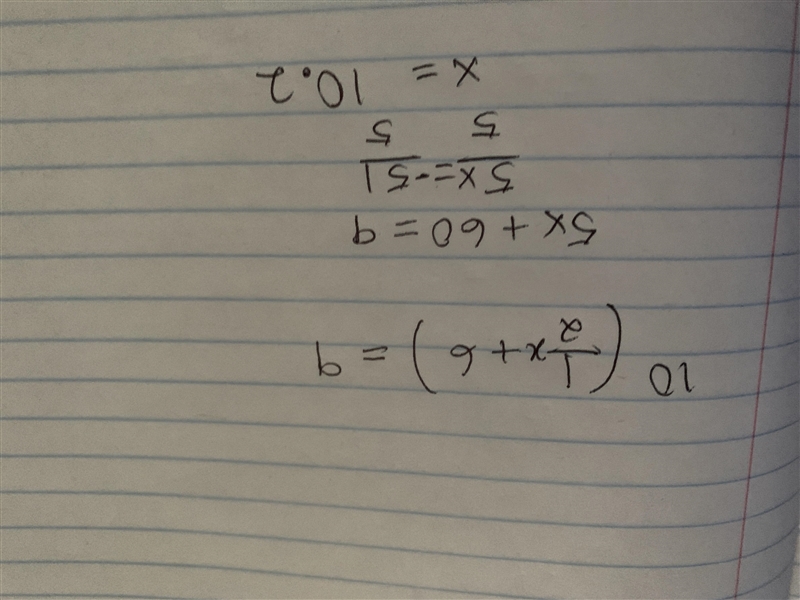 10 (1/2 x + 6) = 9
5x + 60 = 9
5x/5 = -51/5
x = 10.2